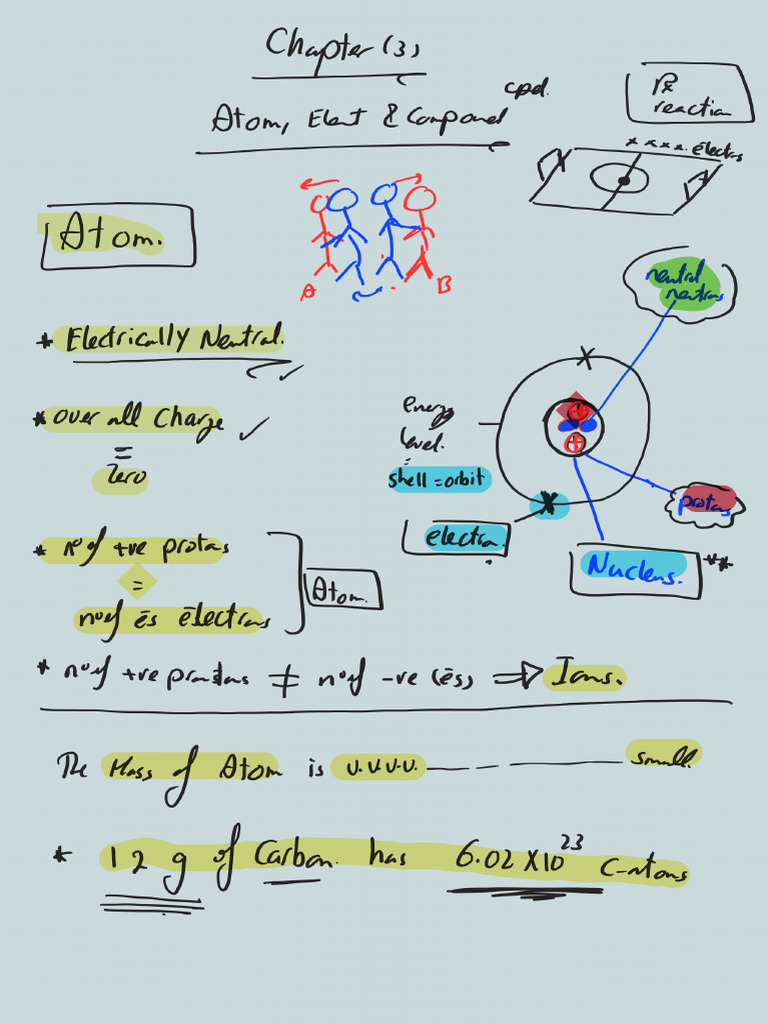 Chapter (3)
Atom, Elent & Compound cpd.
reaction
x x x x. electrons
Atom.
A
B
neutral
neutrons
* Electrically Neutral.
* over all Charge
=
Zero
energy
level.
=
shell = orbit
electron.
protons
Nucleus. **
* no of +ve protons
=
no of ēs electrons
Atom.
* no of +ve protons ≠ no of -ve (ēs) ⇒ Ions.
The Mass of Atom is v.v.v.v. — — — small.
* 12 g of Carbon. has 6.02 X 10²³ C-atoms